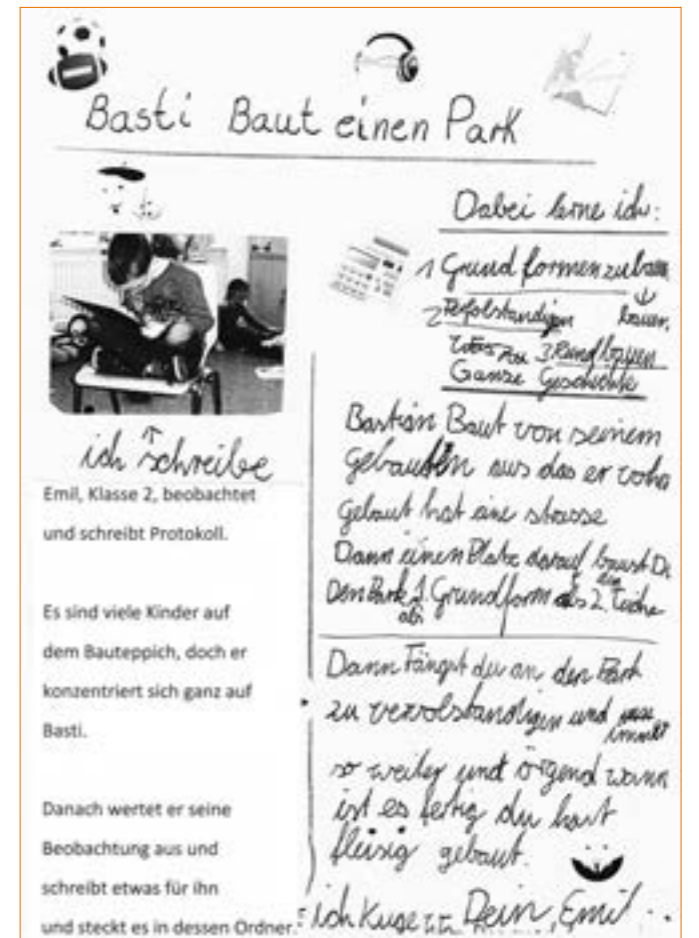 Basti Baut einen Park
ich schreibe
Emil, Klasse 2, beobachtet
und schreibt Protokoll.
Es sind viele Kinder auf
dem Bauteppich, doch er
konzentriert sich ganz auf
Basti.
Danach wertet er seine
Beobachtung aus und
schreibt etwas für ihn
und steckt es in dessen Ordner.
Dabei lerne ich:
1 Grundformen zu
bauen
2
3 Rund bauen
Ganze Geschichte
Bastian Baut von seinem
gebauten aus das er
gebaut hat eine strasse
Dann einen Platz darauf baust Du
Den Park 1. Grundform als 2. Teiche
Dann Fängst du an den Park
zu vervolständigen und immer
so weiter und irgend wann
ist es fertig du hast
fleisig gebaut.
ich Dein Emil